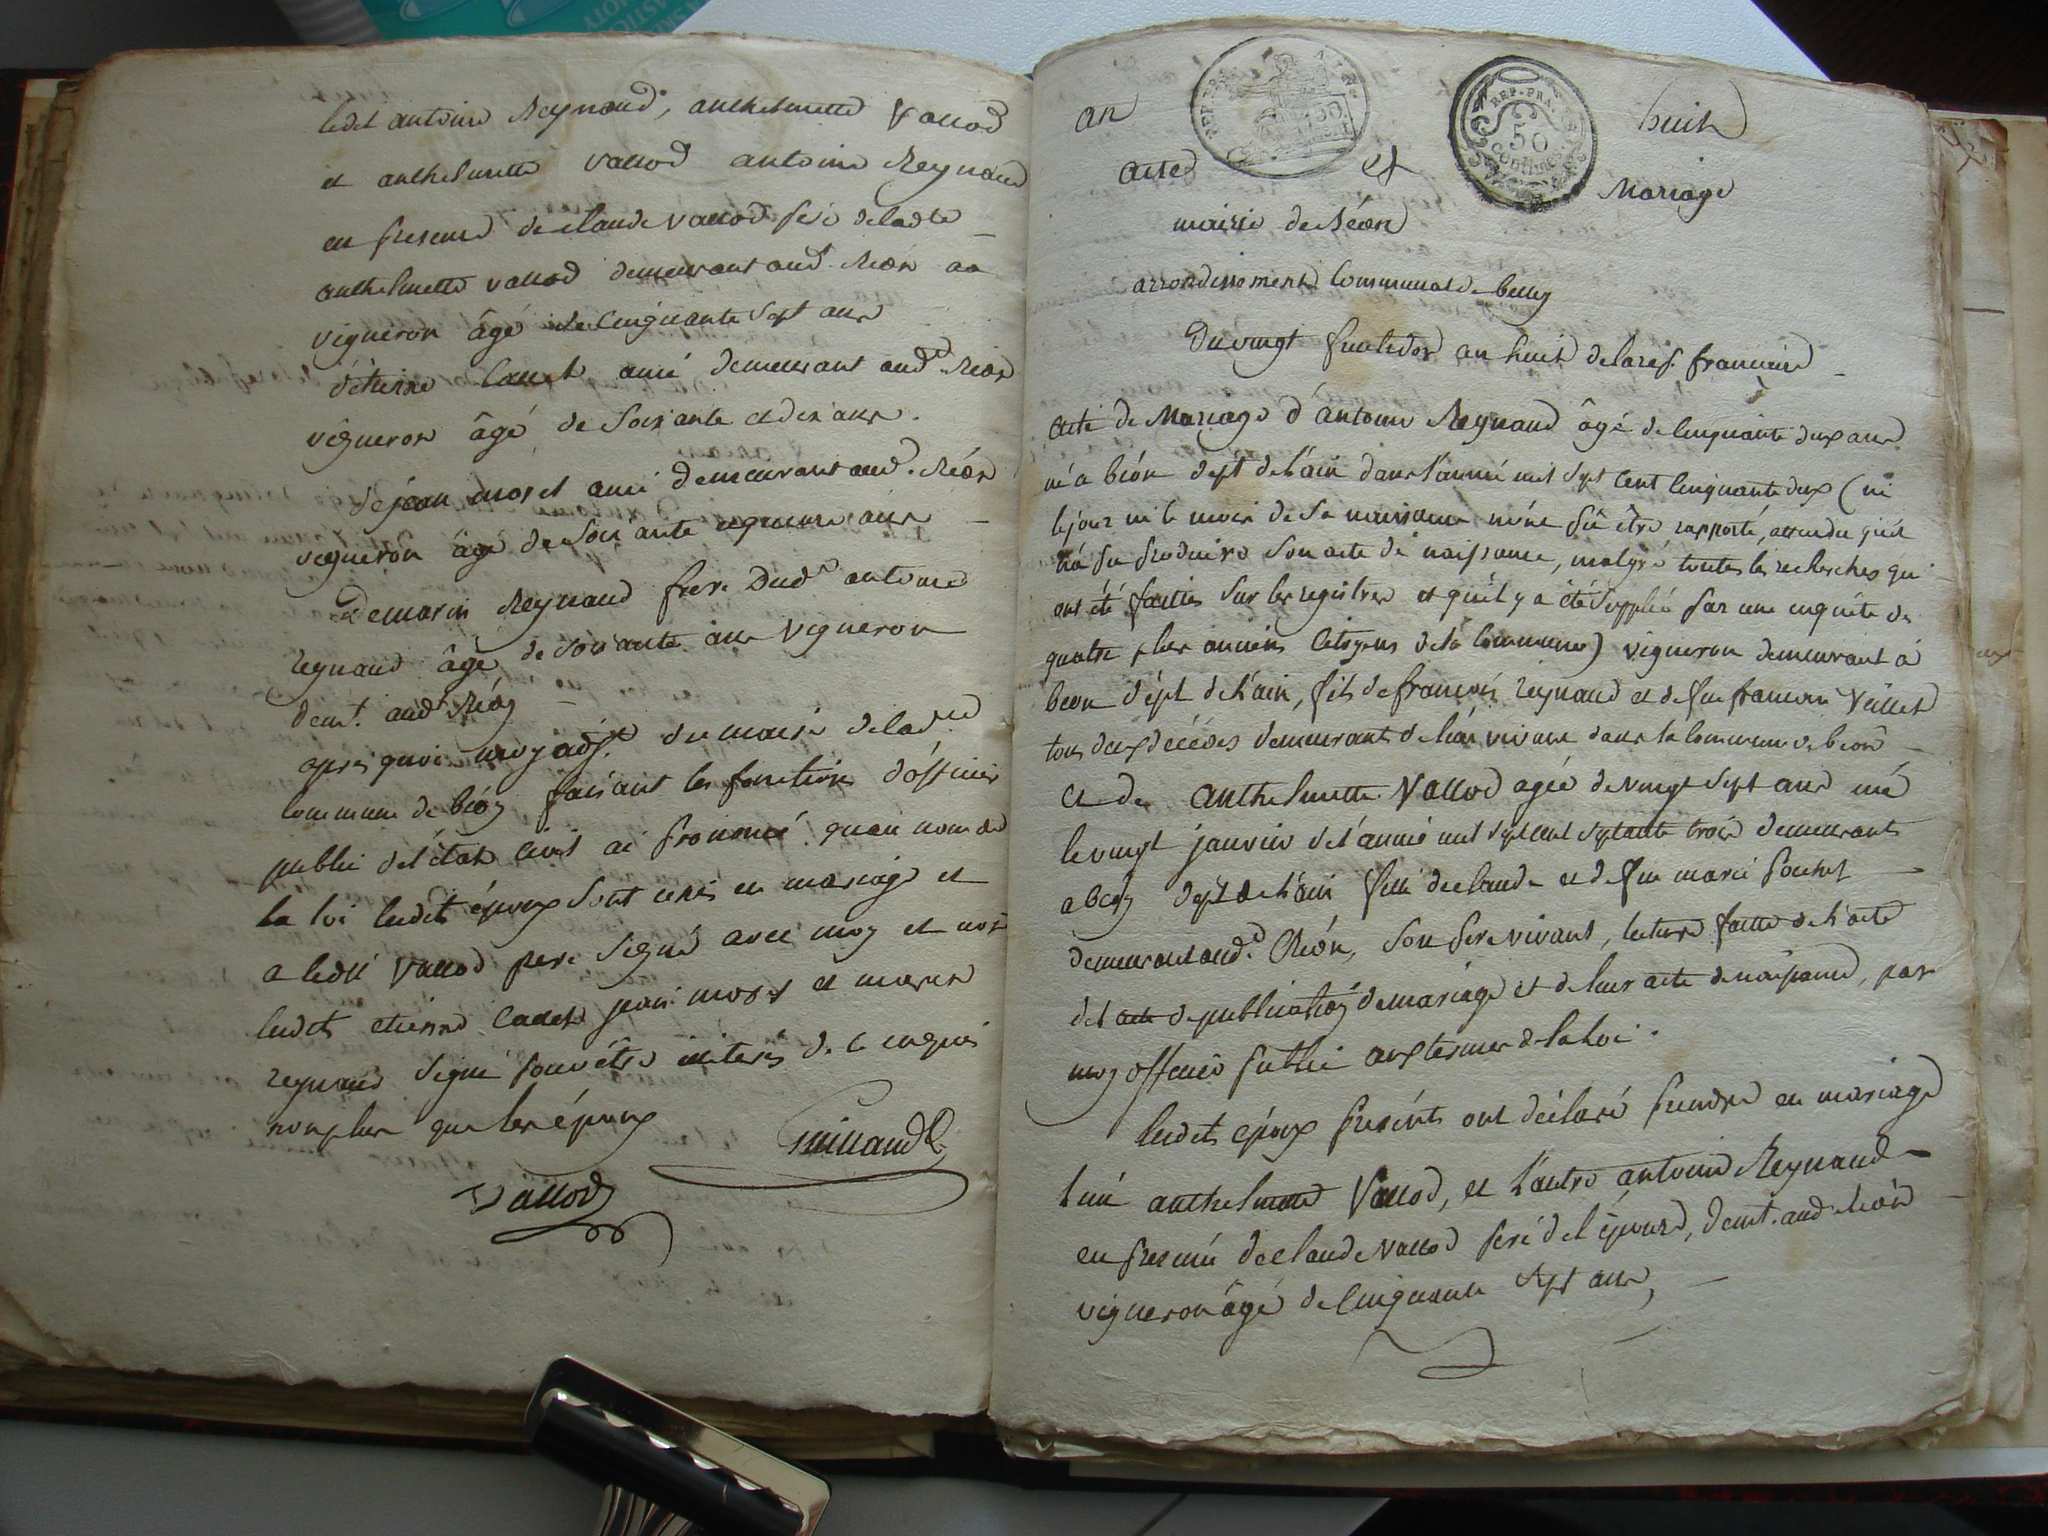 ledit antoine Reynaud, anthelmette Vallod
et anthelmette vallod antoine Reynaud
en presence de claude vallod père de ladte
anthelmette vallod demeurant aud. Béon
vigneron âgé de cinquante sept ans
d'étienne Cadet ami demeurant aud. Béon
vigneron âgé de soixante et dix ans.
de jean moret ami demeurant aud. Béon
vigneron âgé de soixante et quinze ans
de marin Reynaud frere dud. antoine
reynaud âgé de soixante ans vigneron
demt. aud. Béon
apres quoi moy adjt. du maire de lad.
commune de béon faisant les fonctions d'officier
public de l'état civil ai prononcé qu'au nom de
la loi lesdit époux sont unis en mariage et
a ledit vallod pere signé avec moy et non
lesdits etienne Cadet jean moret et marin
reynaud signé pour être illiteres de ce enquis
non plus que les époux
Vallod
an huit
acte de Mariage
mairie de Béon
arrondissement communal de belley
Du vingt fructidor an huit de la rep. francaise
acte de Mariage d'antoine Reynaud âgé de cinquante deux ans
né a béon dept de l'ain dans l'année mil sept cent cinquante deux (ni
le jour ni le mois de sa naissance n'ont pû être rapporté, attendu qu'il
n'a pu produire son acte de naissance, malgré toutes les recherches qui
ont été faittes sur les registres et qu'il y a été suppléé par une enquête de
quatre plus anciens citoyens de la commune) vigneron demeurant à
beon dépt de l'ain, fils de francois reynaud et de feue francoise Vallet
tous deux décédés demeurants de leur vivant dans la commune de béon
et de anthelmette Vallod agée de vingt sept ans née
le vingt janvier de l'année mil sept cent septante trois demeurante
a beon dept de l'ain fille de claude et de feue marie pochet
demeurant aud. Béon, son pere vivant, lecture faitte de l'acte
de l'acte de publication de mariage et de leur acte de naissance, par
moy officier public aux termes de la loi.
lesdits époux présents ont déclaré prendre en mariage
l'une anthelmette Vallod, et l'autre antoine Reynaud
en presence de claude vallod peré de l'épouse, demt. aud Béon
vigneron âgé de cinquante sept ans,
REP. FRA.
50
centimes